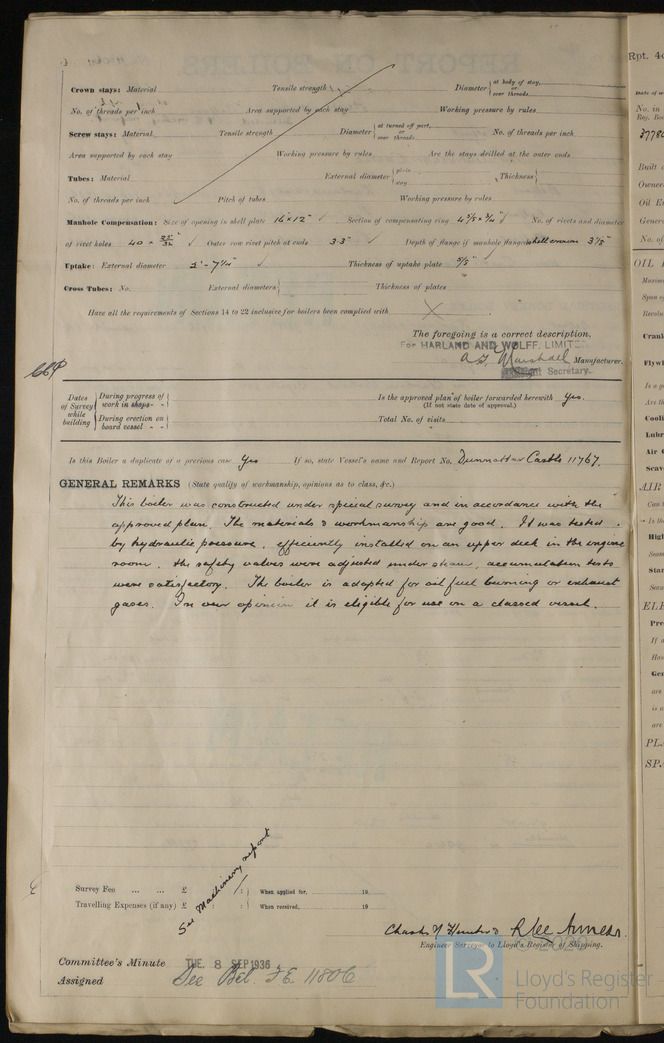 Crown stays: Material Tensile strength Diameter at body of stay, or over threads.
No. of threads per inch Area supported by each stay Working pressure by rules
Screw stays: Material Tensile strength Diameter at turned off part, or over threads. No. of threads per inch
Area supported by each stay Working pressure by rules Are the stays drilled at the outer ends
Tubes: Material External diameter plain stay Thickness
No. of threads per inch Pitch of tubes Working pressure by rules
Manhole Compensation: Size of opening in shell plate 16"x12" Section of compensating ring No. of rivets and diameter
of rivet holes 40 x 25/32 Outer row rivet pitch at ends 3.3" Depth of flange if manhole flanged shell crown 3 1/8"
Uptake: External diameter 2'-7 1/4" Thickness of uptake plate 5/8"
Cross Tubes: No. External diameters Thickness of plates
Have all the requirements of Sections 14 to 22 inclusive for boilers been complied with
The foregoing is a correct description.
For HARLAND AND WOLFF. LIMITED
Marshall Manufacturer.
Secretary.
Dates of Survey while building During progress of work in shops - - Is the approved plan of boiler forwarded herewith Yes.
(If not state date of approval.)
During erection on board vessel - - Total No. of visits
Is this Boiler a duplicate of a previous case Yes If so, state Vessel's name and Report No. Dunnottar Castle 11767.
GENERAL REMARKS (State quality of workmanship, opinions as to class, &c.)
This boiler was constructed under special survey and in accordance with the
approved plan. The materials & workmanship are good. It was tested
by hydraulic pressure, efficiently installed on an upper deck in the engine
room. The safety valves were adjusted under steam, accumulation tests
were satisfactory. The boiler is adapted for oil fuel burning or exhaust
gases. In our opinion it is eligible for use on a classed vessel.
See Machinery report
Survey Fee ... ... £ : : When applied for, 19
Travelling Expenses (if any) £ : : When received, 19
Engineer Surveyor to Lloyd's Register of Shipping.
Committee's Minute TUE. 8 SEP 1936
Assigned See Bel. F.E. 11806
LR
2020
Lloyd's Register
Foundation
Rpt. 4c